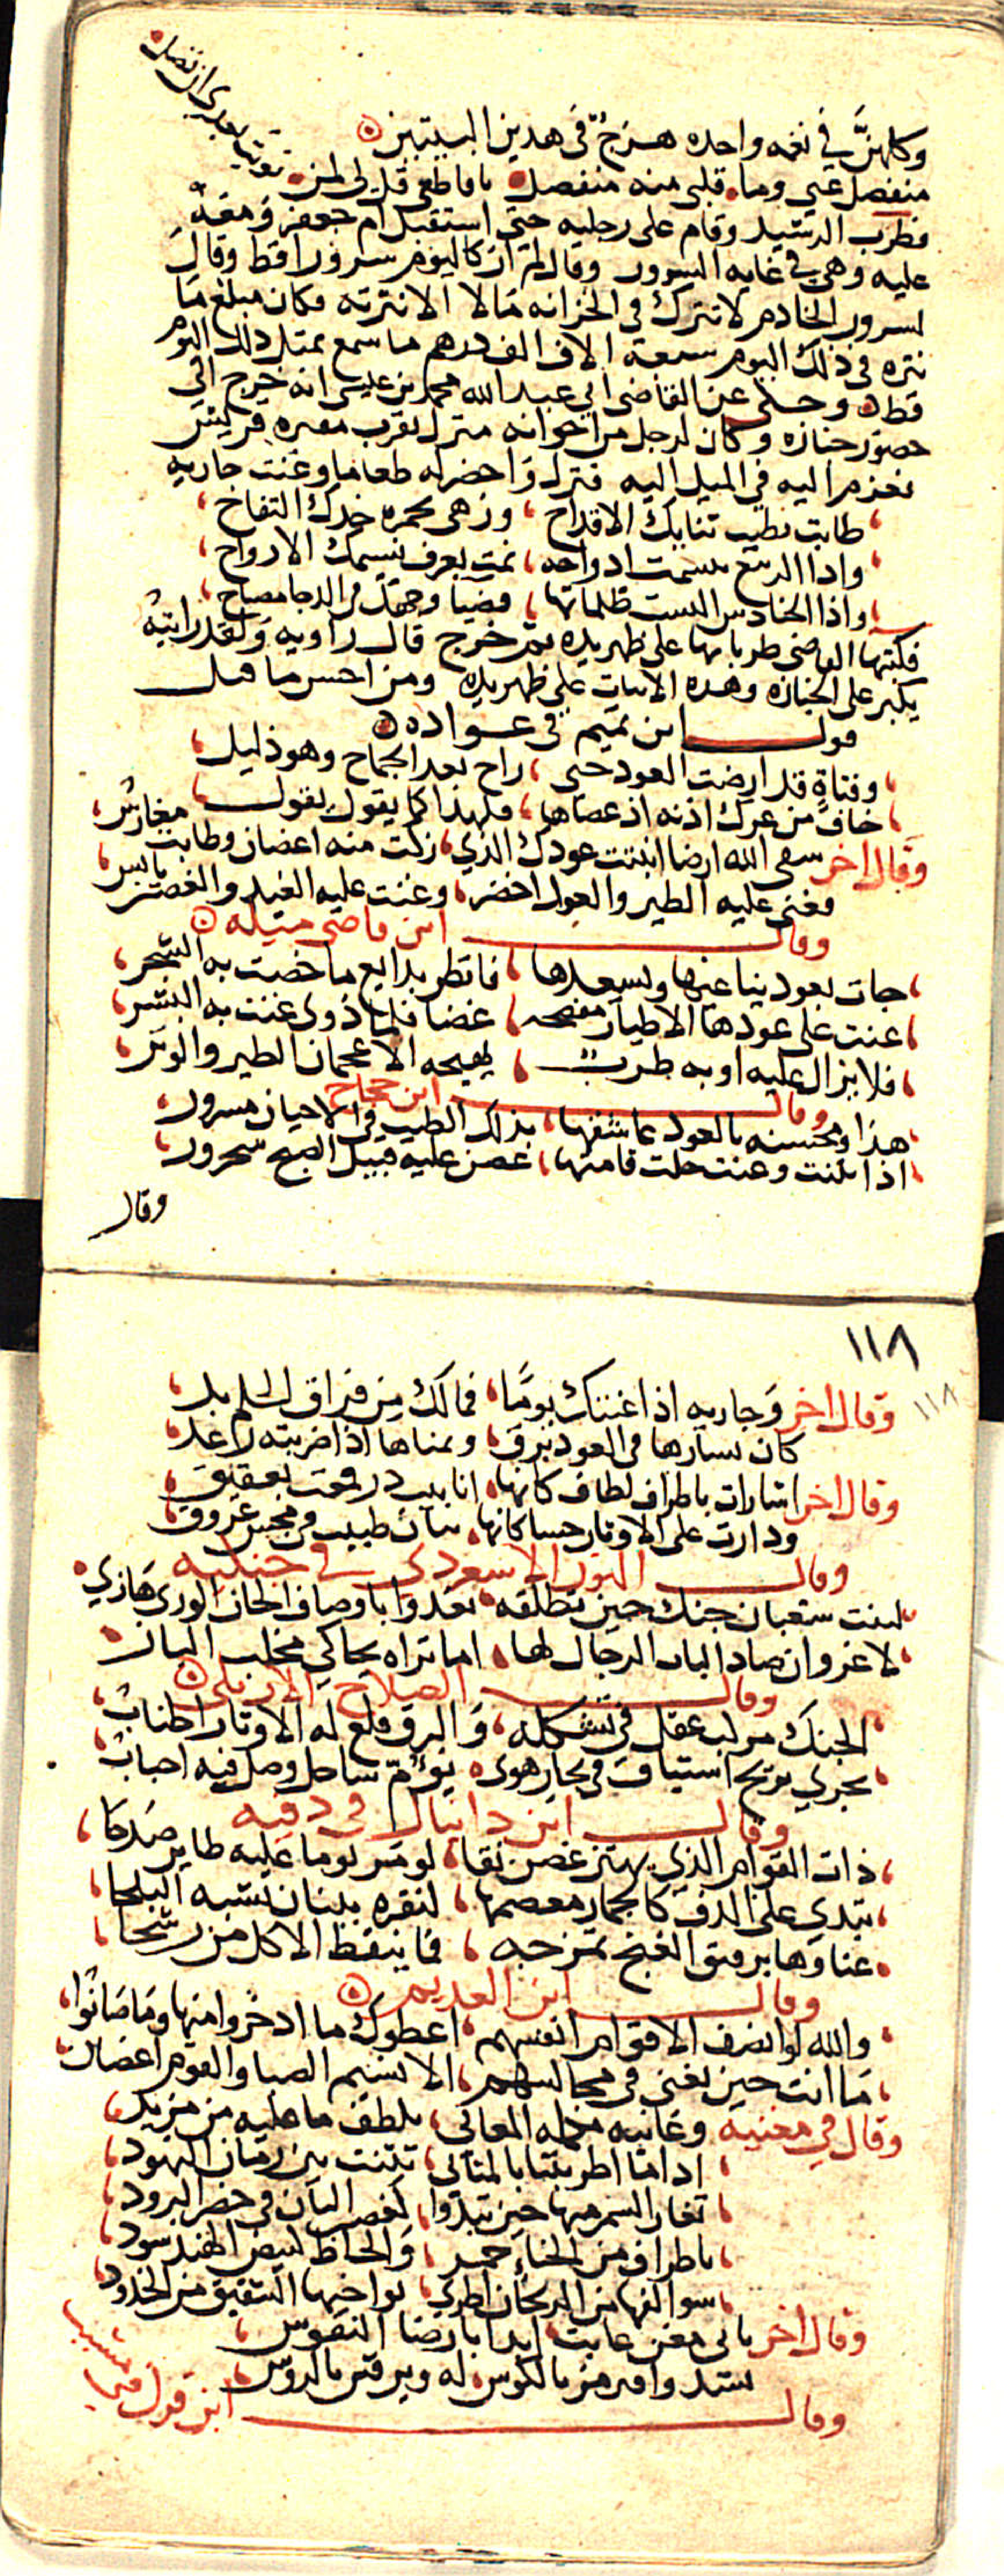 وكلهنّ في نغمه واحده هزج في هدين البيتين
منفصل عني وما قلبي منه منفصل يا قاطعي قل لي لمن نويت بعدي ان تصل
فطرب الرشيد وقام على رجليه حتى استقبل ام جعفر ومعه
عليه وهي في غايه السرور وقال لم ار كاليوم سرورا قط وقال
لمسرور الخادم لا تترك في الخزانه مالا الا نثرته فكان مبلغ ما
نثره في ذلك اليوم ستة الاف الف درهم ما سمع بمثل ذلك اليوم
قط وحكى عن القاضي ابي عبد الله محمد بن عيسى انه خرج الى
حضور جنازه وكان لرجل من اخوانه منزل بقرب مقبره قريش
فعزم اليه في الميل اليه فنزل واحضر له طعاما وغنت جاريه
طابت بطيب ثناياك الاقداح وزهى بحمره خدك التفاح
واذا الربيع تنسمت ارواحه نمت بعرف نسيمك الارواح
واذا الحنادس البست ظلماتها فضيا وجهك في الدجا مصباح
فكتبها القاضي طربا بها على ظهر يده ثم خرج قال راويه ولقد رايته
يكبر على الجنازه وهده الابيات على ظهر يده ومن احسن ما قيل
قول ابن تميم في عواده
وفتاةٍ قد ارضت العود حتى راح بعد الجماح وهو ذليل
خاف من عرك اذنه اذ عصاها فلهذا كما يقول يقول
وقال اخر سقى الله ارضا انبتت عودك الذي زكت منه اغصان وطابت مغارس
فغنى عليه الطير والعود اخضر وغنت عليه الغيد والغصن يابس
وقال ابن قاضي ميله
جات بعود يناغيها ويسعدها فانظر بدايع ما خصت به الشجر
غنت على عودها الاطيار مفصحه غضا فلما ذوى غنت به البشر
فلا يزال عليه او به طرب يهيجه الاعجمان الطير والوتر
وقال ابن حجاج
هذا ومحسنه بالعود عاشقها بذاك الطيب في الاحيان مسرور
اذا تثنت وغنت خلت قامتها غصن عليه قبيل الصبح شحرور
وقال
١١٨
١١٨
وقال اخر وجاريه اذا غنتك يوما فمالك من فراق الحلم بد
كان يسارها في العود برق ويمناها اذا ضربته رعد
وقال اخر اشارات باطراف لطاف كانها انابيب در قمعت بعقيق
ودارت على الاوتار جسا كانها بنان طبيب في مجس عروق
وقال النور الاسعردي في جنكيه
لبنت شعبان جنك حين تنطقه تغدوا باوصاف الحان الورى هازي
لا غرو ان صاد الباب الرجال لها اما تراه يحاكي مخلب الباز
وقال الصلاح الاربلي
الجنك مركب عقل في تشكله والبرق قلع له الاوتار اطناب
يجري بريح اشتياق في بحار هوى يؤم ساحل وصل فيه احباب
وقال ابن دانيال في دفيه
ذات القوام الذي يهتز غصن نقا لو مر يوما عليه طاير صدحا
تبدي على الدف كالجمار معصمها لنقره ببنان تشبه البلحا
غناوها برقيق الغنج تمزجه فما ينقط الا كل من رشحا
وقال ابن العديم
والله لو انصف الاقوام انفسهم اعطوك ما ادخروا منها وما صانوا
ما انت حين تغني في مجالسهم الا نسيم الصبا والقوم اغصان
وقال في مغنيه وغانيه محله المعاني بلطف ما عليه من مزيد
اذا ما اطربتنا بالمثاني تثنت بين رمان النهود
تغار السمر منها حين تبدوا كغصن البان في خضر البرود
باطراف من الحناء حمر والحاظ كبيض الهند سود
سوالفها من الريحان اطري نواخيها الشقيق من الخدود
وقال اخر بابي مغن غابت ابدا بارضا النفوس
نشدوا فنرمز بالكوس له ويرقص بالروس
وقال ابن قزل في مشبب